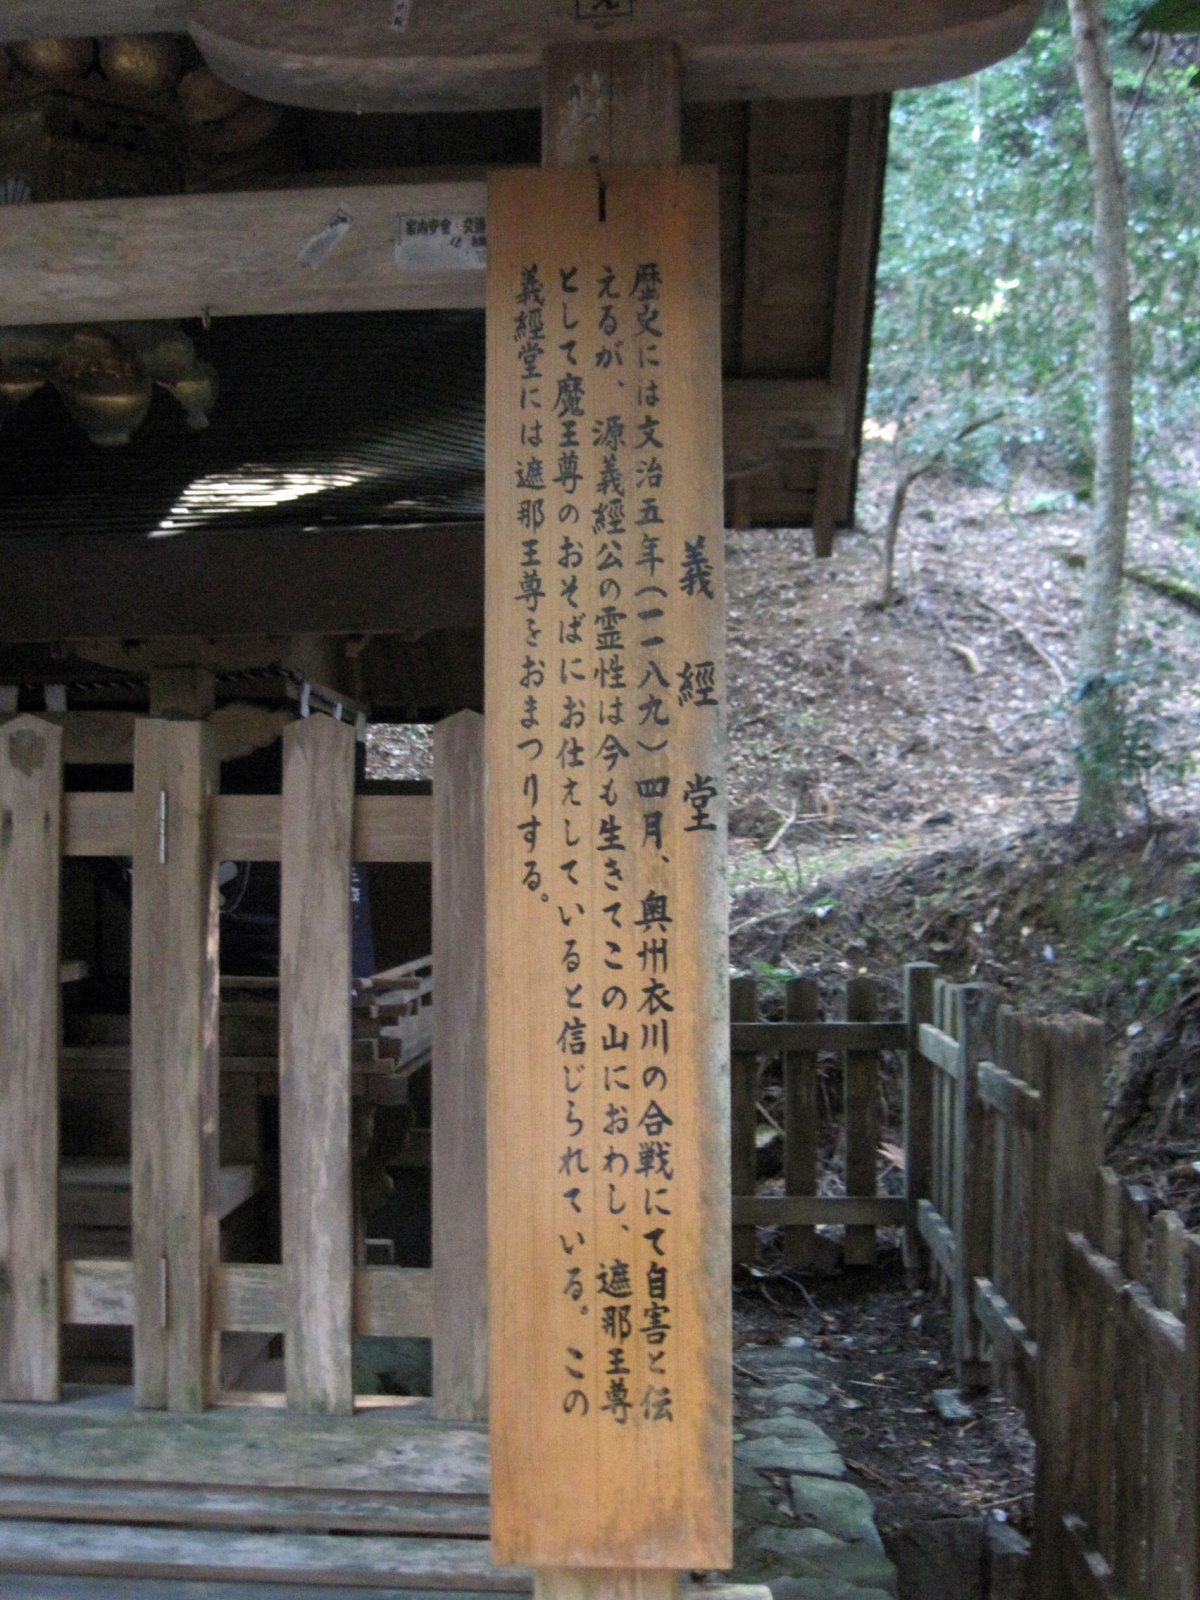 義經堂
歴史には文治五年(一一八九)四月、奥州衣川の合戦にて自害と伝
えるが、源義經公の霊性は今も生きてこの山におわし、遮那王尊
として魔王尊のおそばにお仕えしていると信じられている。この
義經堂には遮那王尊をおまつりする。
家内安全 交通